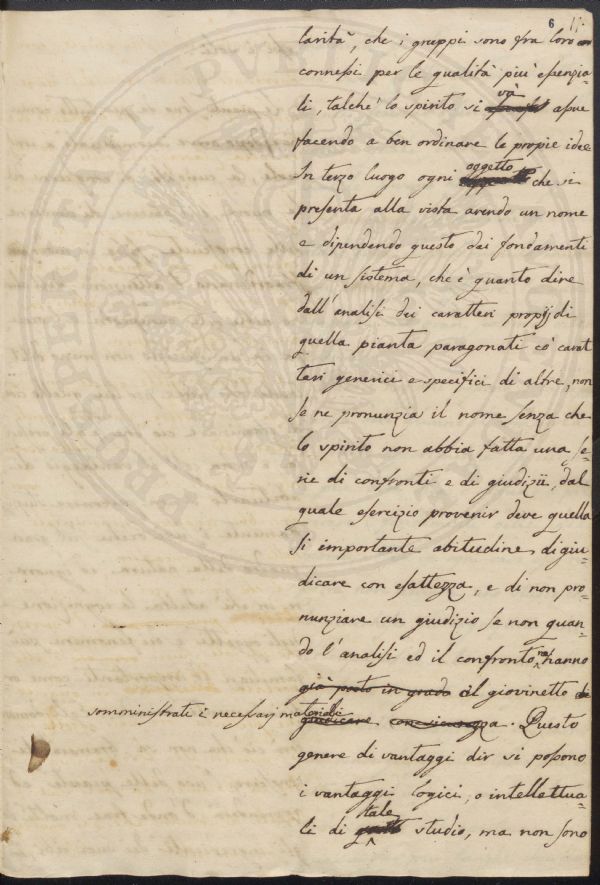 6
larità, che i gruppi sono fra loro
connessi per le qualità più essenzia-
li, talchè lo spirito si và assue
facendo a ben ordinare le propie idee
In terzo luogo ogni oggetto che si
presenta alla vista avendo un nome
e dipendendo questo dai fondamenti
di un sistema, che è quanto dire
dall'analisi dei caratteri propij di
quella pianta paragonati co' carat
teri generici e specifici di altre, non
se ne pronunzia il nome senza che
lo spirito non abbia fatta una se=
rie di confronti e di giudizii, dal
quale esercizio provenir deve quella
sì importante abitudine di giu
dicare con esattezza, e di non pro=
nunziare un giudizio se non quan=
do l'analisi ed il confronto ne hanno
già posto in grado il giovinetto di
somministrati i necessarj materiali
giudicare con sicurezza. Questo
genere di vantaggi dir si possono
i vantaggi logici, o intellettua=
li di tale studio, ma non sono